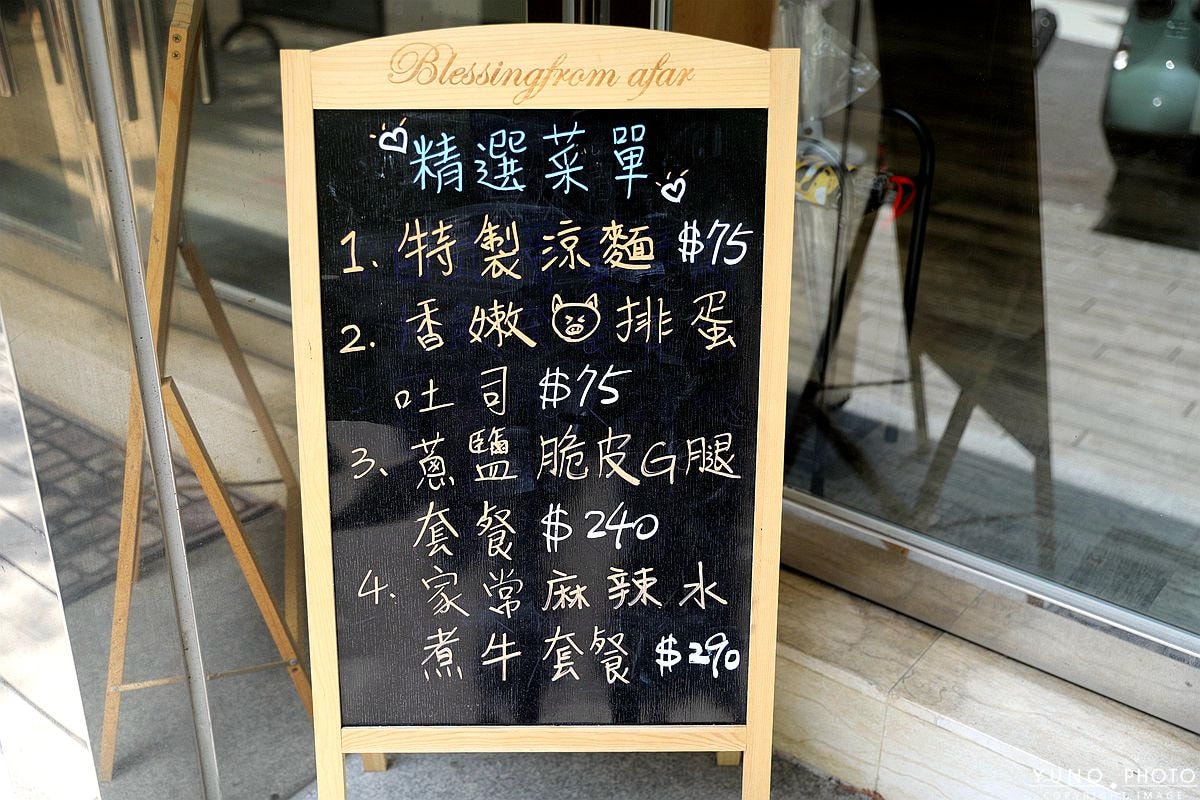 Blessingfrom afar
精選菜單
1. 特製涼麵 $75
2. 香嫩🐷排蛋
吐司 $75
3. 蔥鹽脆皮G腿
套餐 $240
4. 家常麻辣水
煮牛套餐 $290
YUNO PHOTO
COPYRIGHT IMAGE